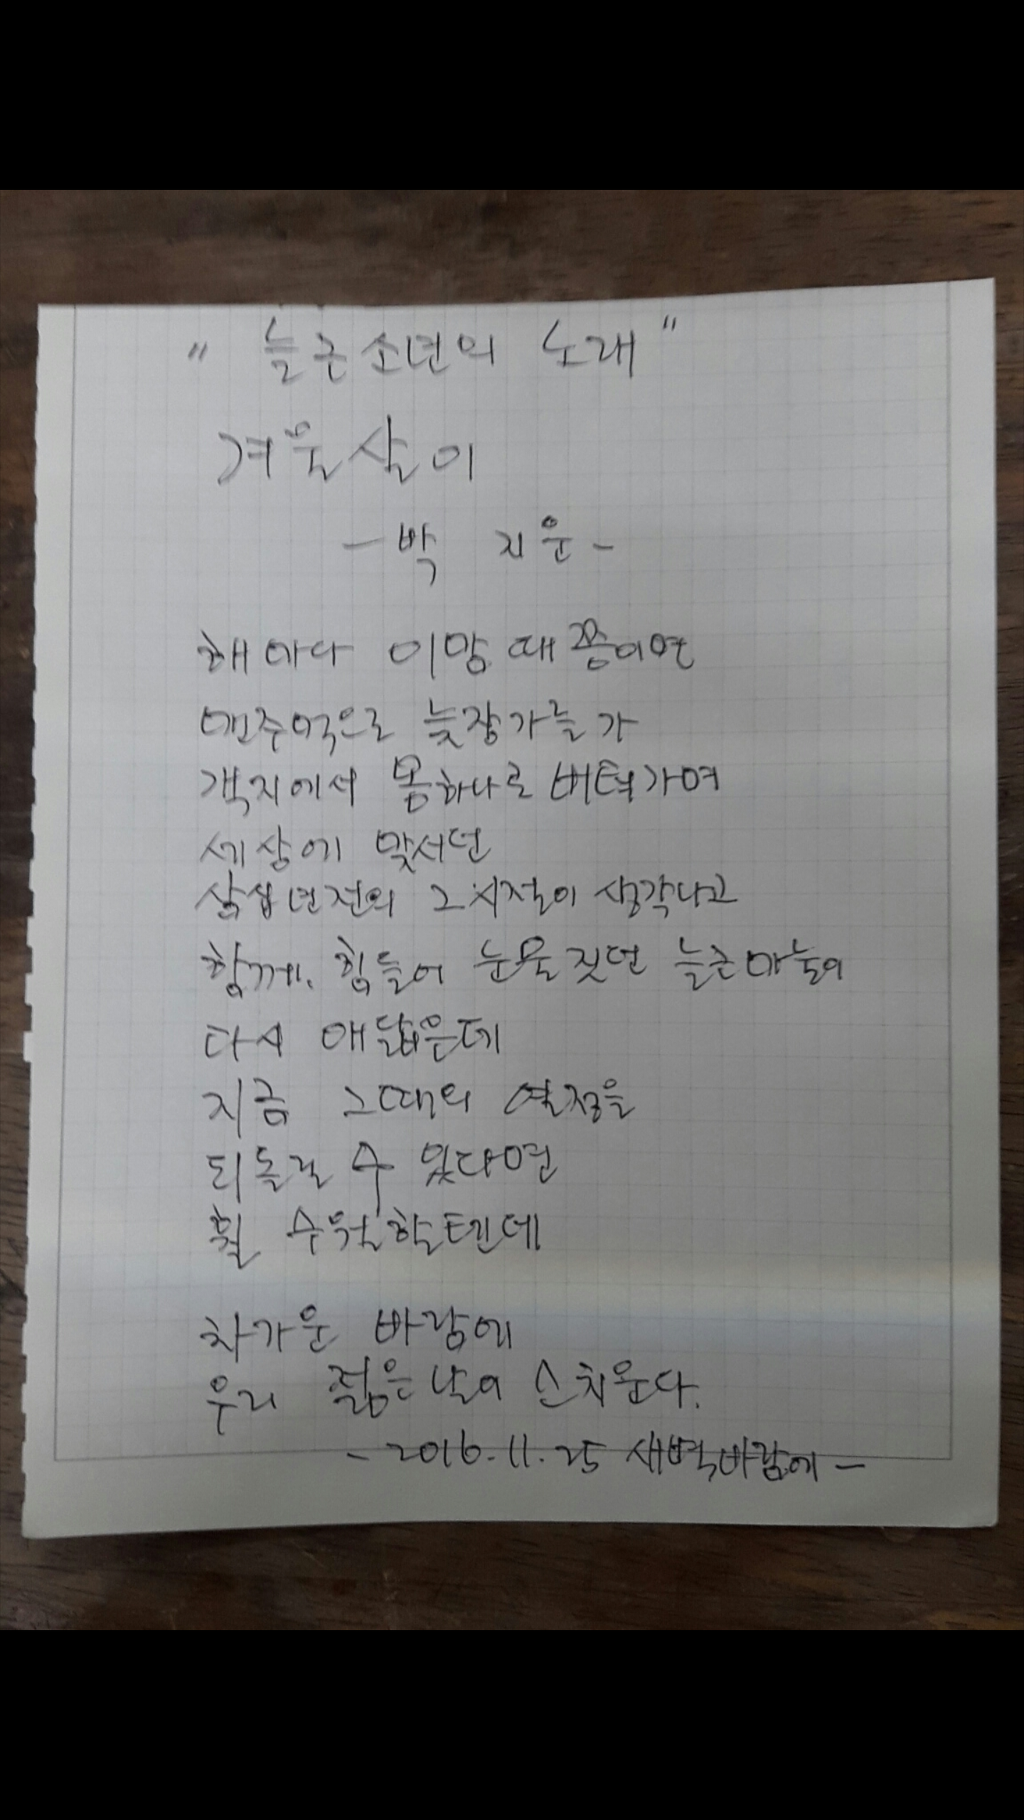 " 늙근소년의 노래 "
겨울살이
- 박 지운 -
해마다 이맘 때쯤이면
맨주먹으로 늦장가들가
객지에서 몸하나로 버텨가며
세상에 맞서던
삼십년전의 그시절이 생각나고
함께, 힘들어 눈물짓던 늙근마눌이
다시 애닯은데
지금 그때의 열정을
되돌릴 수 있다면
훨 수월할텐데
차가운 바람에
우리 젊은날이 스치운다.
- 2016.11.25 새벽바람에 -